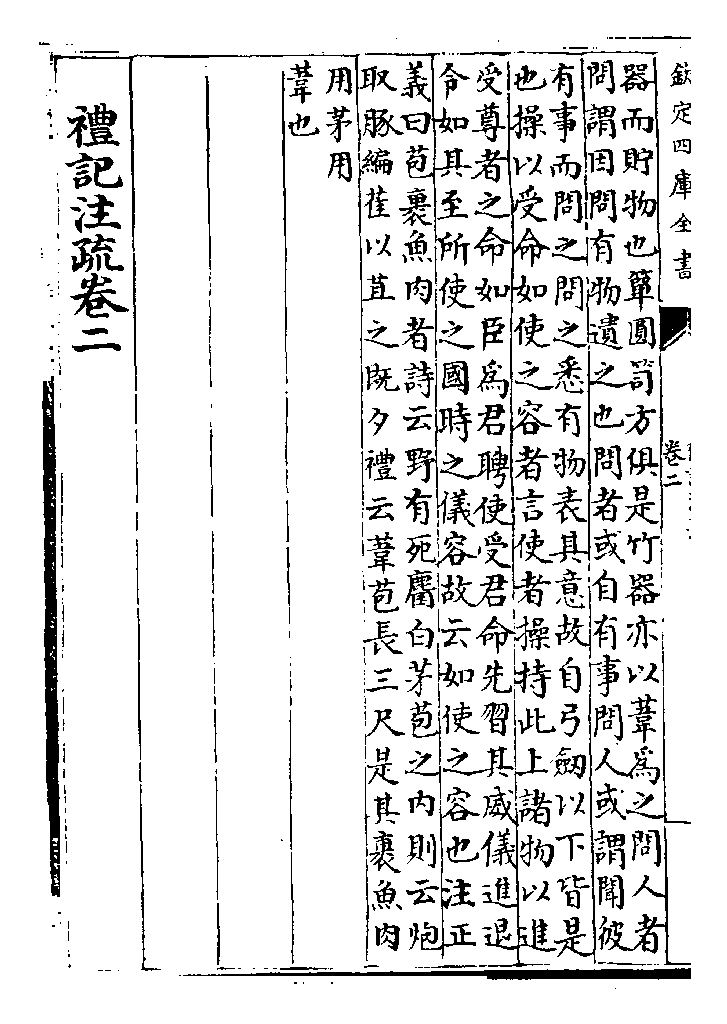 欽定四庫全書
卷二
器而貯物也簞圓笥方俱是竹器亦以葦為之問人者
問謂因問有物遺之也問者或自有事問人或謂聞彼
有事而問之問之悉有物表其意故自弓劒以下皆是
也操以受命如使之容者言使者操持此上諸物以進
受尊者之命如臣為君聘使受君命先習其威儀進退
令如其至所使之國時之儀容故云如使之容也注正
義曰苞裹魚肉者詩云野有死麕白茅苞之内則云炮
取豚編萑以苴之既夕禮云葦苞長三尺是其裹魚肉
用茅用
葦也
禮記注疏卷二